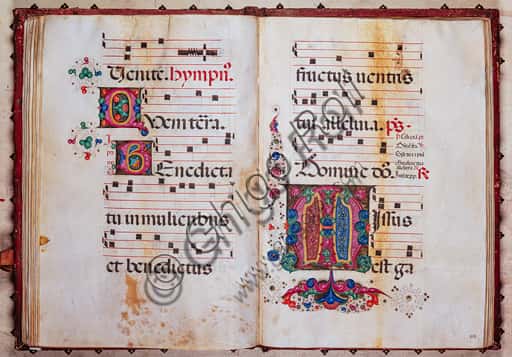 Venite. hympn9.
Quem terra.
Benedicta
tu in mulieribus
et benedictus
fructus uentris
tui alleluia. ps.
Domine do.
Missus
est ga
Ghigo Roli